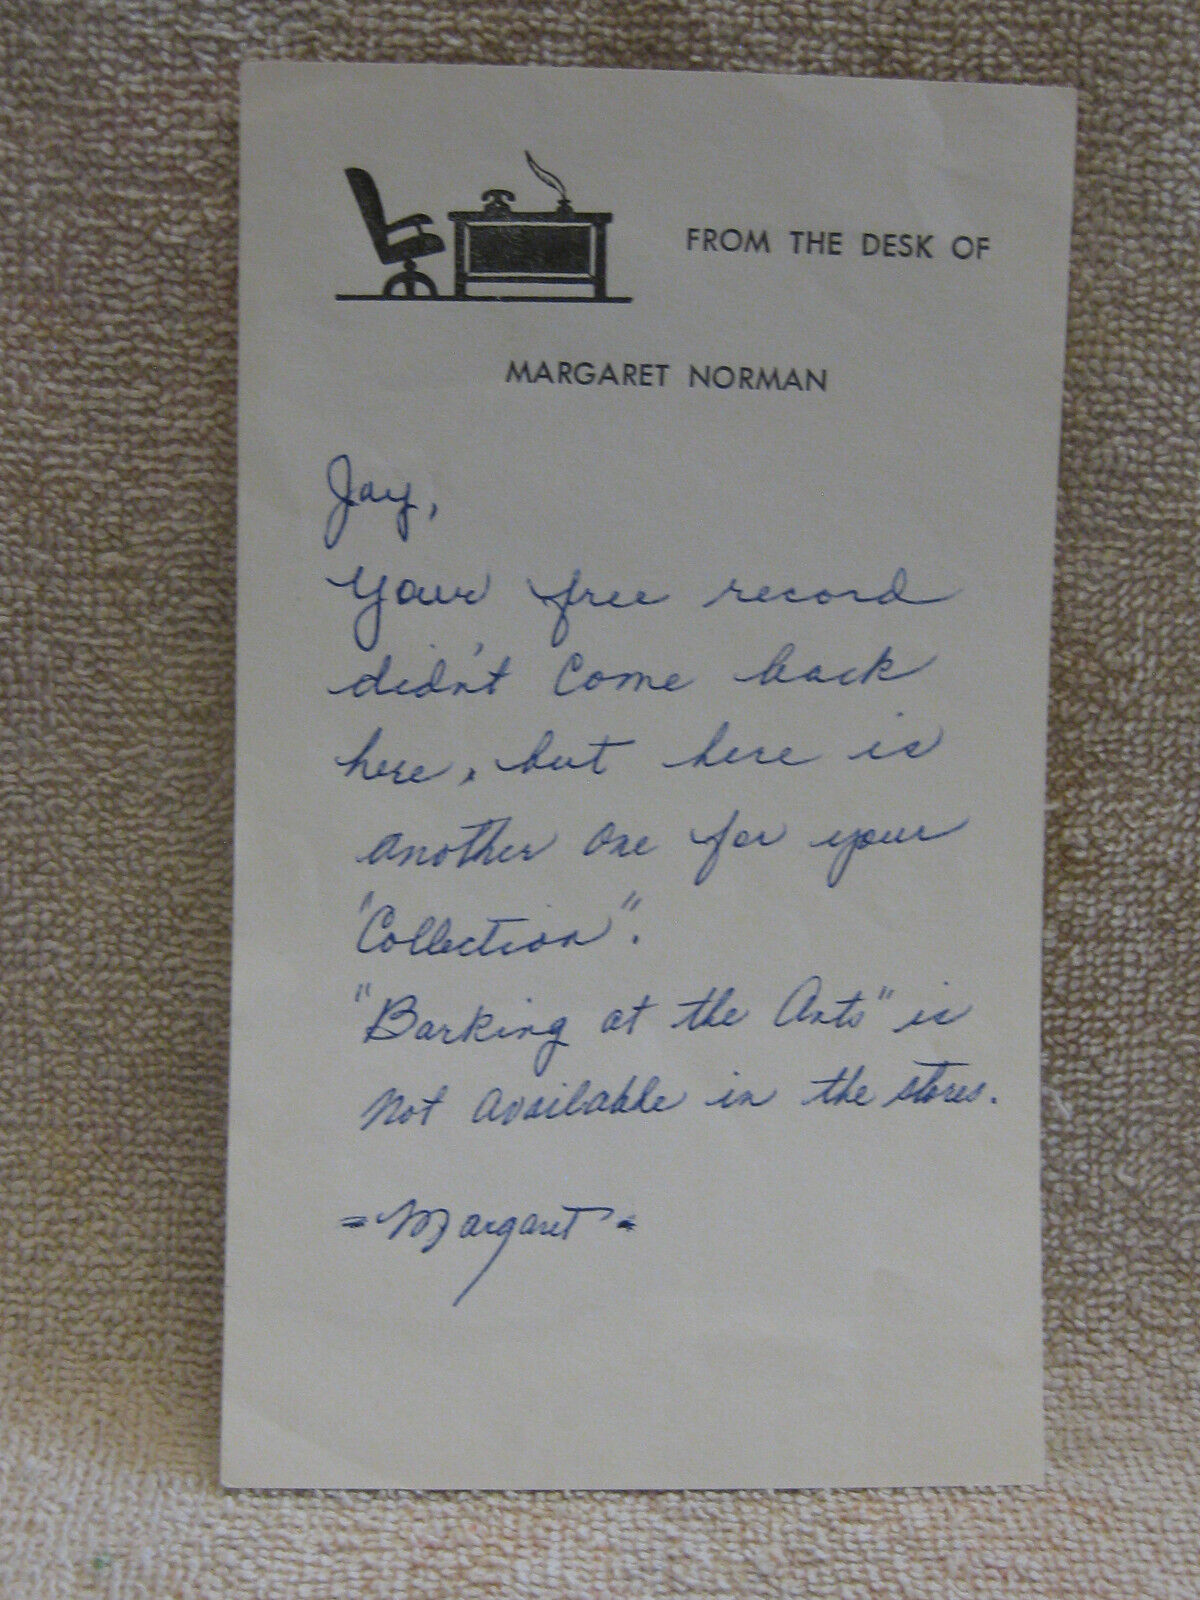 FROM THE DESK OF
MARGARET NORMAN
Jay,
Your free record
didn't come back
here, but here is
another one for your
"Collection".
"Barking at the Ants" is
not available in the stores.
- Margaret -